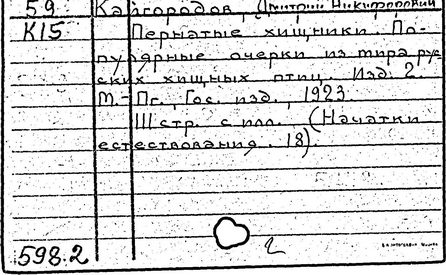 59 Кайгородов, Дмитрий Никифорович
К15 Пернатые хищники. По-
пулярные очерки из мира рус-
ских хищных птиц. Изд. 2.
М.-Пг., Гос. изд., 1923.
111 стр. с илл. (Начатки
естествознания. 18).
2
598.2